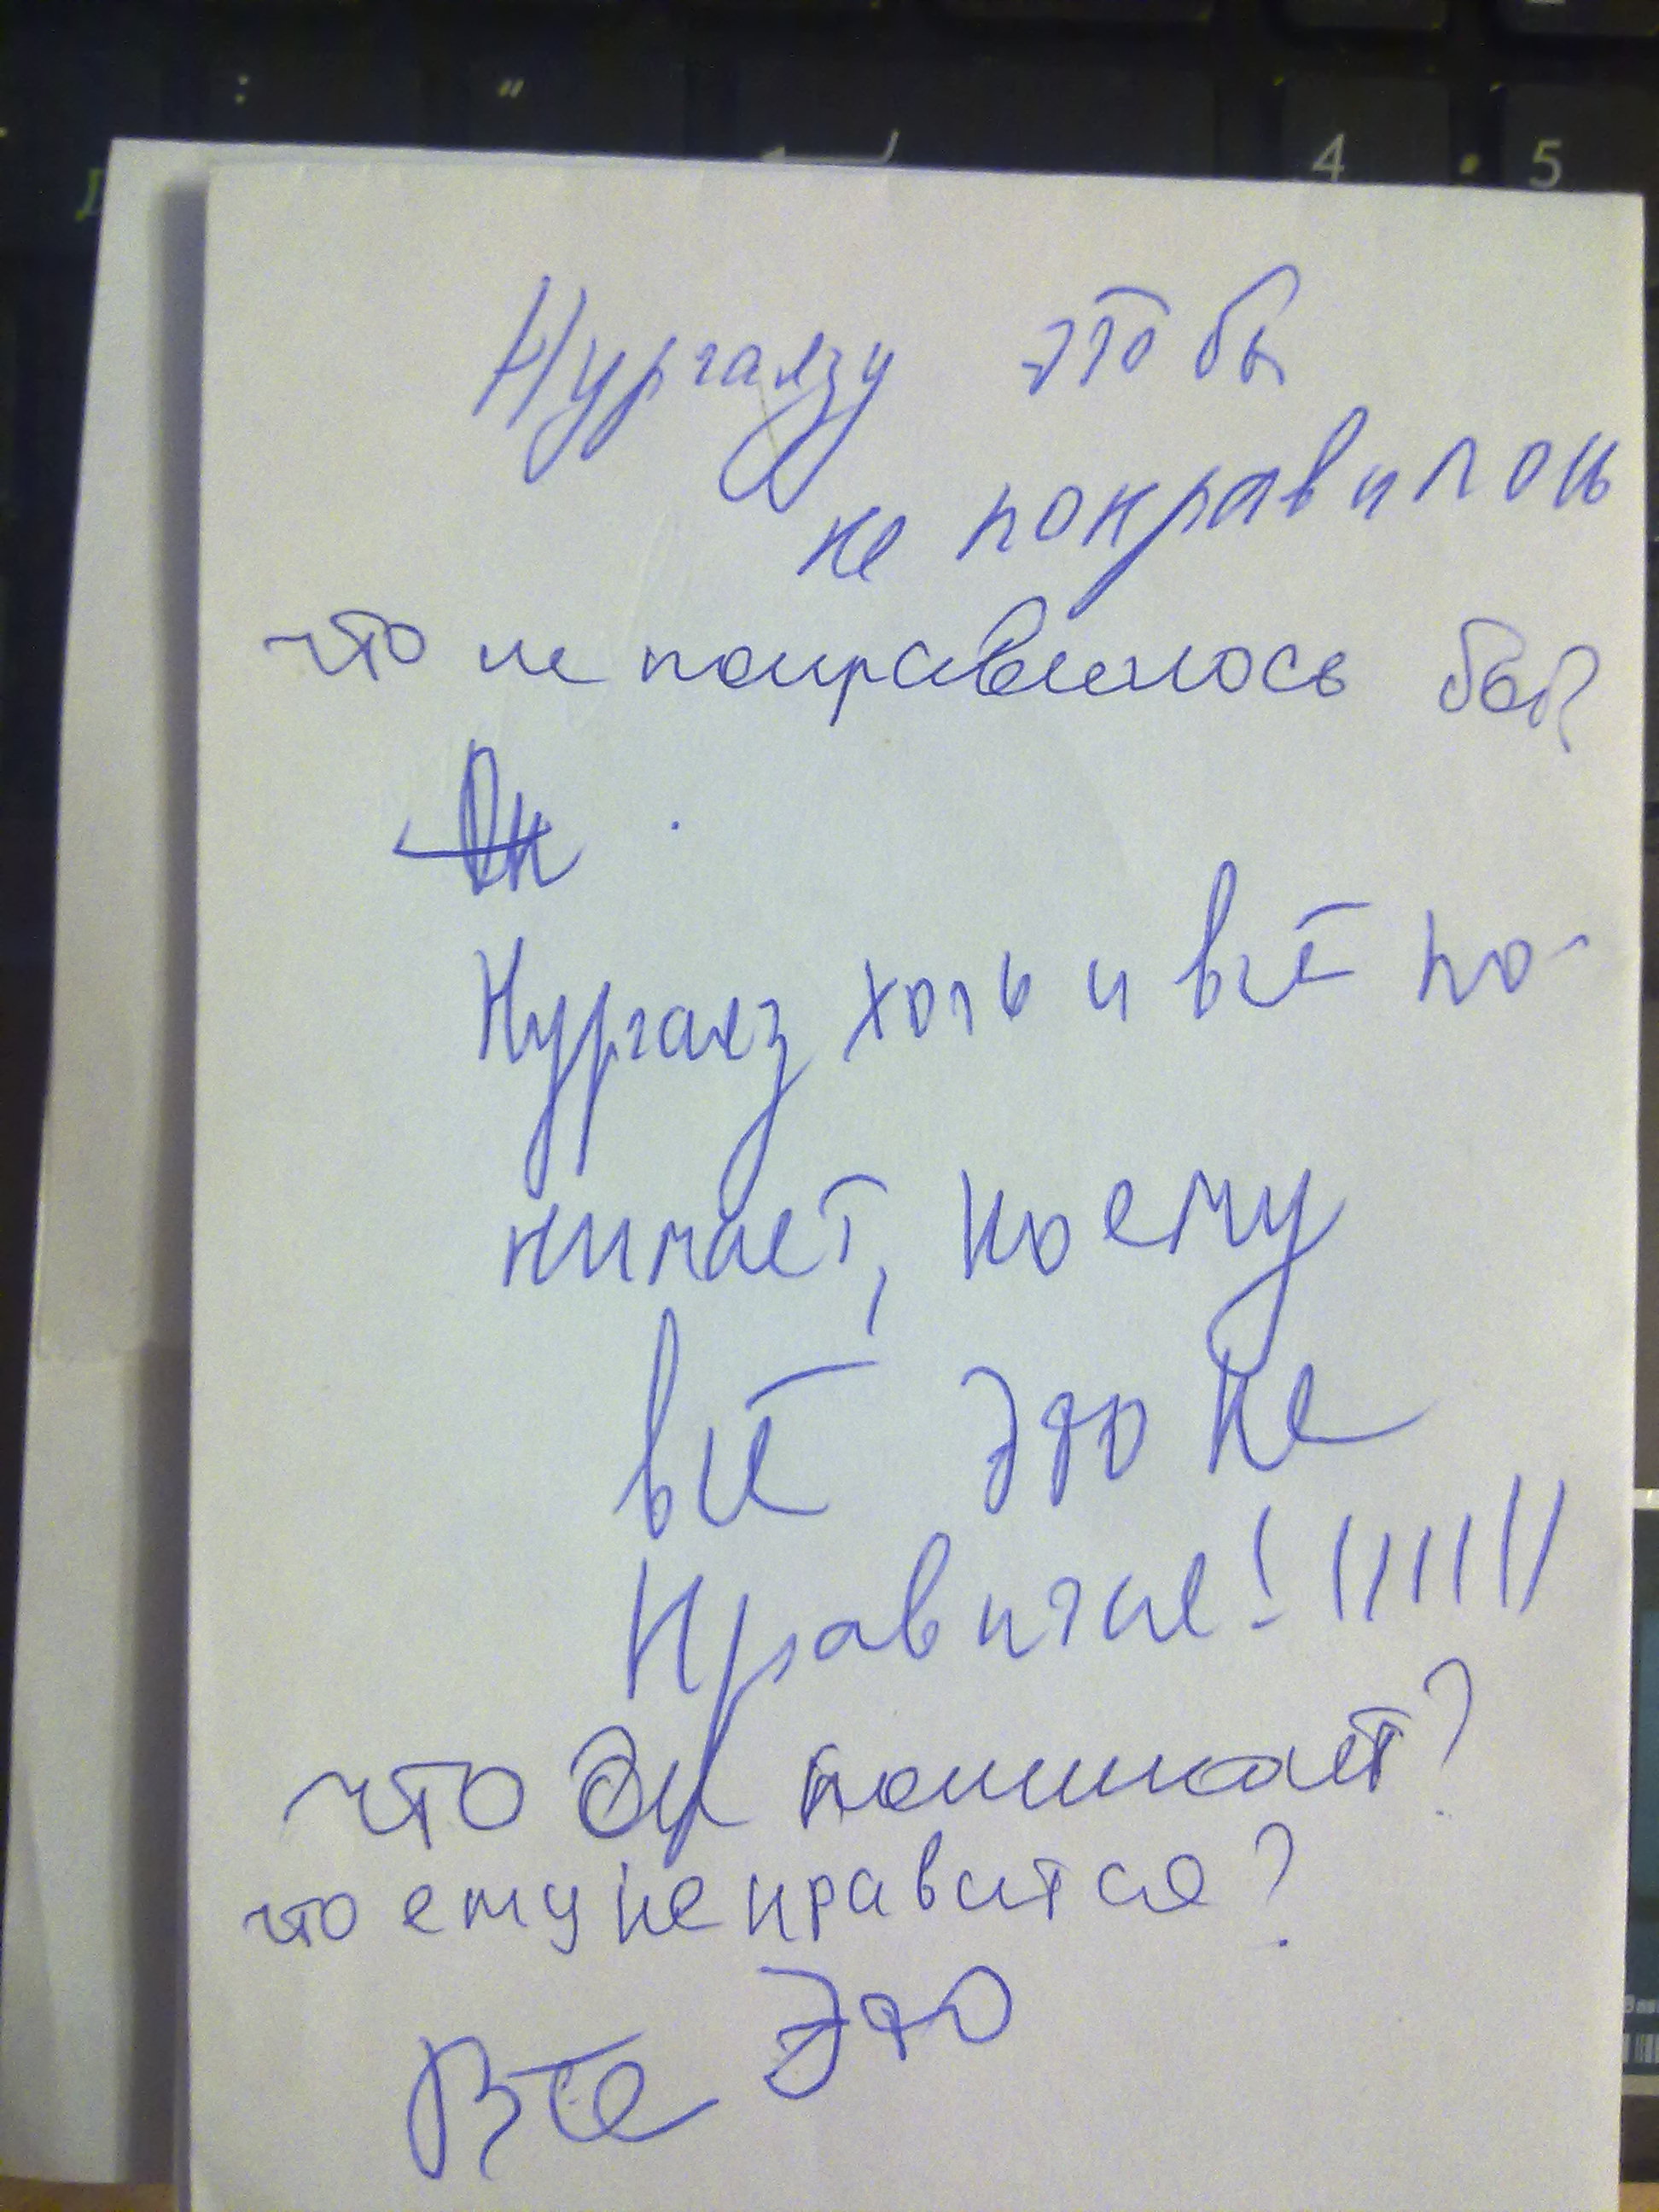 : " 4 5
Нургаязу это бы
не понравилось
что не понравилось бы?
Он
Нургаяз хоть и всё по-
нимает, но ему
всё это не
нравится!!!!!!!
что Он понимает?
что ему не нравится?
Все это